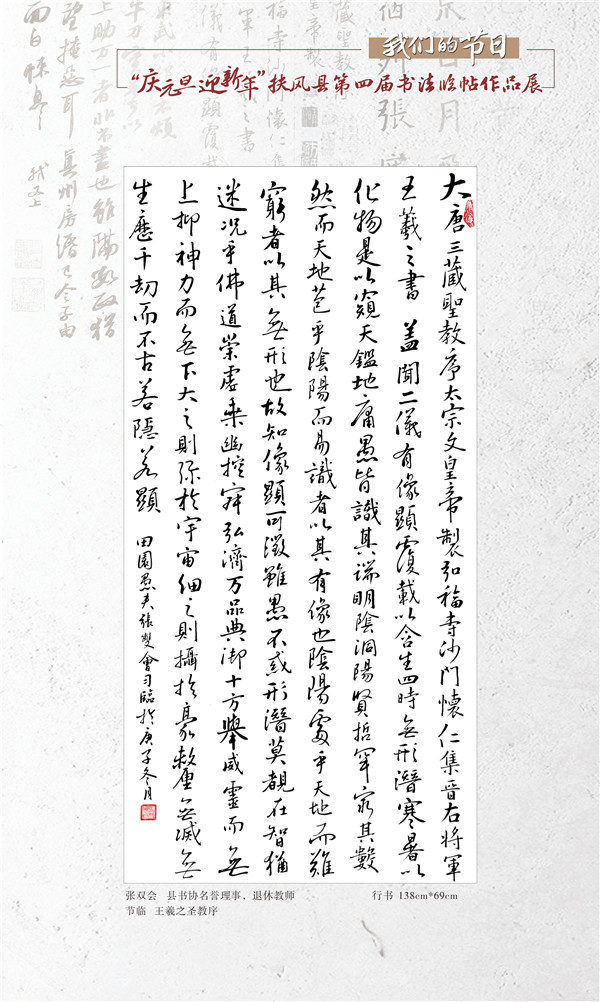 我们的节日
“庆元旦迎新年”扶风县第四届书法临帖作品展
大唐三藏聖教序太宗文皇帝製弘福寺沙門懷仁集晉右將軍
王羲之書 蓋聞二儀有像顯覆載以含生四時無形潛寒暑以
化物是以窺天鑑地庸愚皆識其端明陰洞陽賢哲罕窮其數
然而天地苞乎陰陽而易識者以其有像也陰陽處乎天地而難
窮者以其無形也故知像顯可徵雖愚不惑形潛莫覩在智猶
迷況乎佛道崇虛乘幽控寂弘濟万品典御十方舉威靈而無
上抑神力而無下大之則彌於宇宙細之則攝於豪釐無滅無
生歷千劫而不古若隱若顯
田園愚夫張雙會习臨於庚子冬月
张双会 县书协名誉理事、退休教师
节临 王羲之圣教序
行书 138cm*69cm